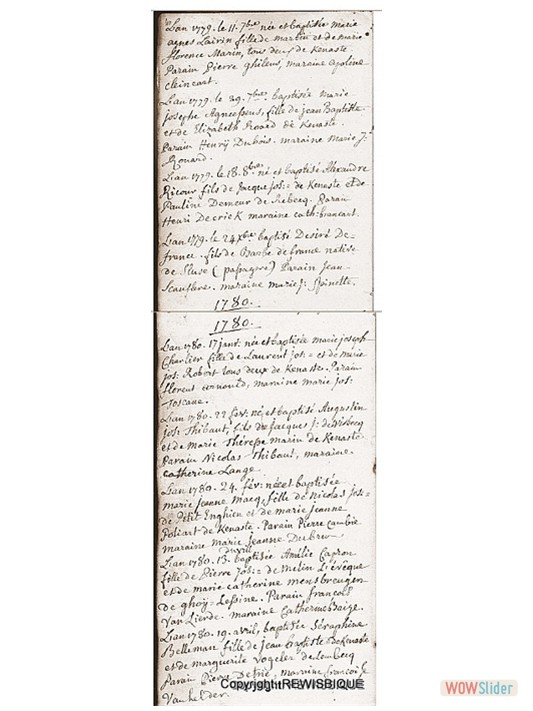 L'an 1779. le 11. 7bre née et baptisée marie
agnes Lairin fille de martin et de marie
florence Marin, tous deux de Kenaste.
Parain Pierre ghileus, maraine apoline
cleincart.
L'an 1779. le 29. 7bre baptisée marie
josephe Agneessens, fille de jean Baptiste
et de Elizabeth Roard de Kenaste.
Parain Henrÿ Dubois. maraine Marie J:
Rouard.
L'an 1779. le 18. 8bre né et baptisé Alexandre
Ricour fils de Jacque jos: de Kenaste et de
Pauline Demeur de Rebecq. Parain
Henri Decrick maraine cath: brancart.
L'an 1779. le 24 xbre baptisé Desiré De-
france. fils de Barbe de france native
de Sluse (passagere) Parain Jean
maraine marie j: Spinette.
1780.
1780.
L'an 1780. 17 janv: née et baptisée marie joseph
Charlier fille de Laurent jos: et de marie
jos: Robert tous deux de Kenaste. Parain
florent arnould, maraine marie jos:
Toscane.
L'an 1780. 22 fevr: né et baptisé Augustin
jos: Thibaut, fils de jacques j: de Wisbecq
et de Marie Therese marin de Kenaste
Parain Nicolas Thibaut, maraine.
catherine Lange.
L'an 1780. 24. fév: née et baptisée
marie jeanne Macq, fille de Nicolas jos:
de Petit Enghien et de marie jeanne
Poliart de Kenaste. Parain Pierre cambie
maraine marie Jeanne Dubreu
d'avril
L'an 1780. 13. baptisée Amélie Capron
fille de Pierre jos: de Melin L'évêque
et de marie catherine mensbreugen
de ghoÿ Lessine. Parain francois
Van Lierde. maraine Catherine Baize.
L'an 1780. 19. avril, baptisée Séraphine
Belleman fille de jean Baptiste de Kenaste
et de marguerite Vogeler de Lembecq
Parain Pierre Detrie, marraine francoise
Vanhelder.
Copyright IREWISBIQUE
WOWSlider